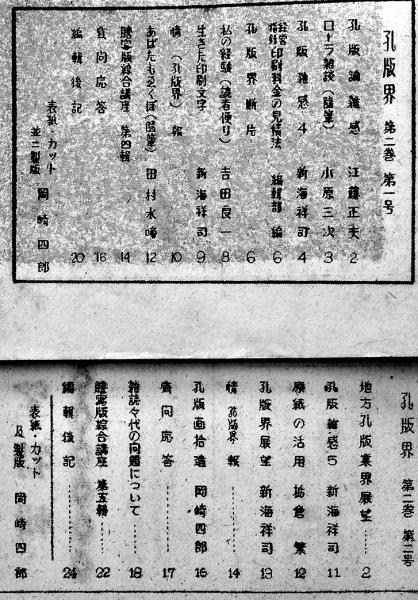 孔版界 第二巻 第一号
孔版論雑感 江藤正夫 2
ローラ雑談(随筆) 小原三次 3
孔版雑感4 新海祥司 4
指針印刷料金の見積法 編輯部編 6
孔版界断片 6
私の経験(読者便り) 吉田良一 8
生きた印刷文字 新海祥司 9
情(孔版界)報 10
あばたもえくぼ(随筆) 田村水晴 12
謄写版綜合講座 第四輯 14
質問応答 16
編輯後記 20
表紙・カット
並ニ製版 岡崎四郎
孔版界 第二巻 第二号
地方孔版業界展望 2
孔版雑感5 新海祥司 11
原紙の活用 板倉繁 12
孔版界展望 新海祥司 13
情 孔版界 報 14
孔版画拾遺 岡崎四郎 16
質問応答 17
雑誌々代の問題について 18
謄写版綜合講座 第五輯 22
編輯後記 24
表紙・カット
及製版 岡崎四郎